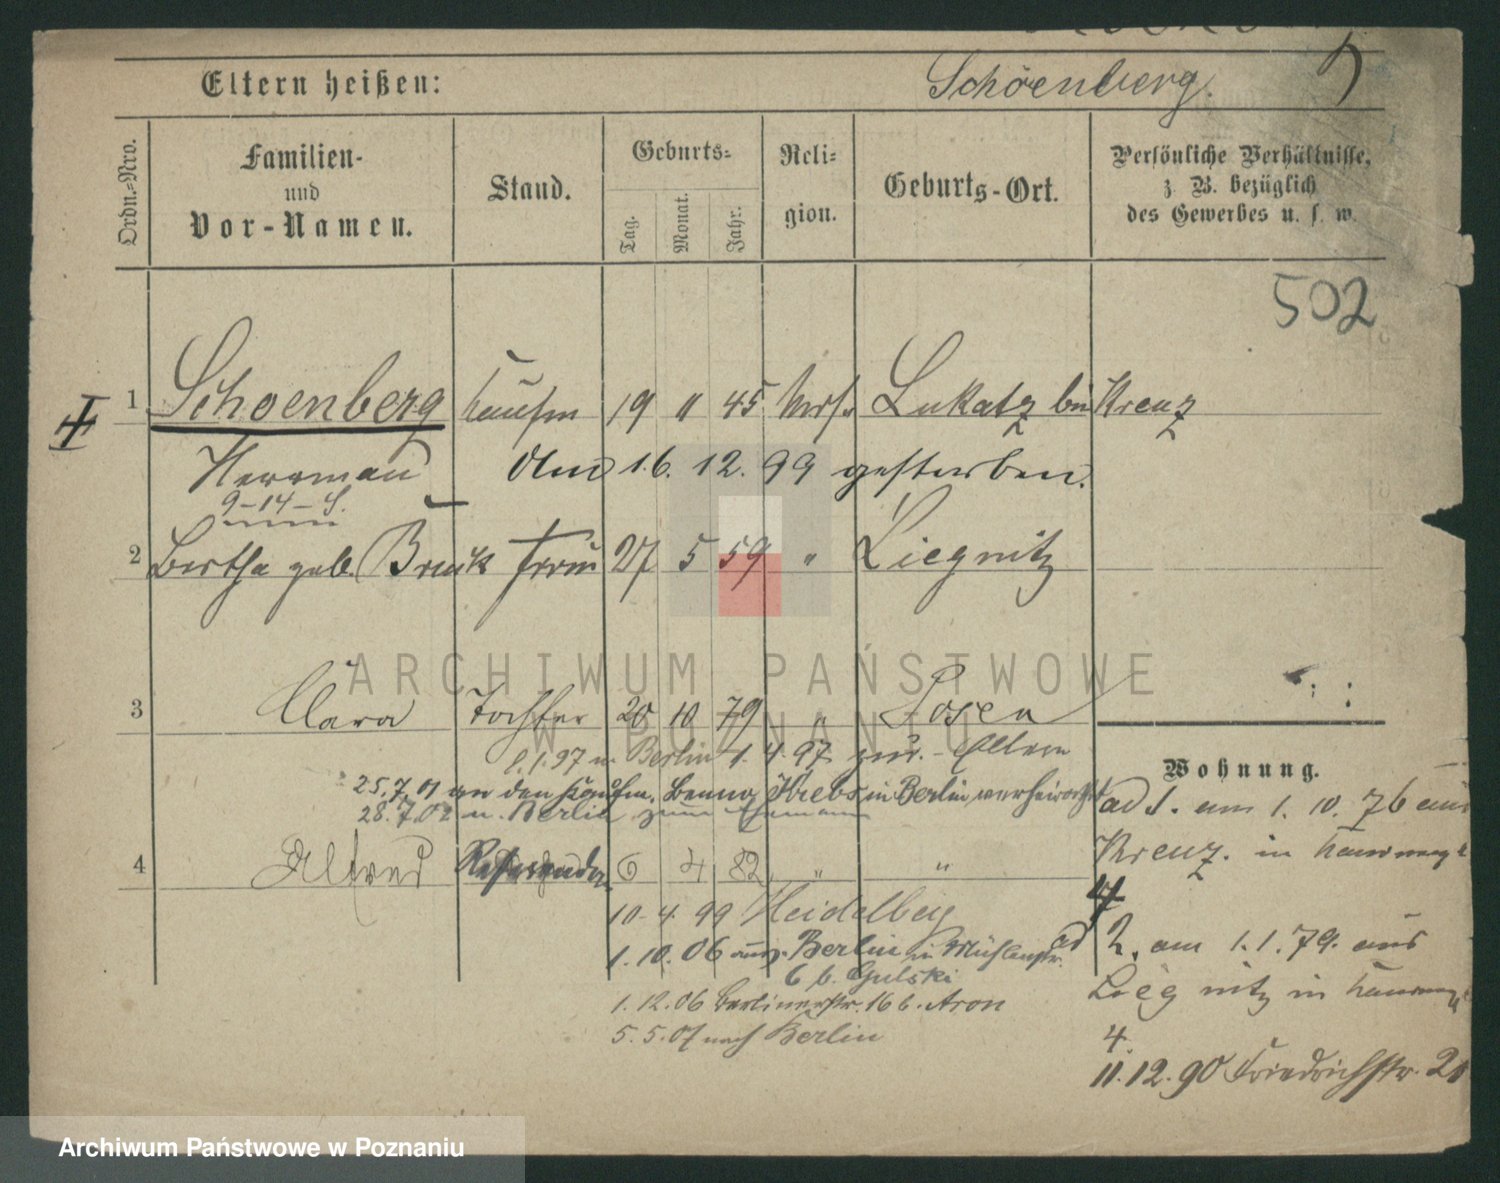 Eltern heißen:
Schoenberg.
Ordn.-Nro.
Familien-
und
Vor-Namen.
Stand.
Geburts-
Tag.
Monat.
Jahr.
Reli-
gion.
Geburts-Ort.
Persönliche Verhältnisse,
z. B. bezüglich
des Gewerbes u. s. w.
502
1 Schoenberg Kaufm 19 " 45 Mos. Lukatz bei Kreuz
Herrman Am 16. 12. 99 gestorben.
9-14-
2 Bertha geb. Bruck Frau 27 5 59 " Liegnitz
3 Clara Tochter 20 10 79 " Posen
1.97 n. Berlin 1. 4. 97 zur. Eltern
25.7.01 an den Kaufm. Benno Krebs in Berlin verheirathet
28.7.02 n. Berlin zum Ehemann
4 Alfred Referendar 6 4 82 " "
10. 4. 99 Heidelberg
1. 10. 06 aus Berlin in Mühlenstr.
6 b. Gulski
1. 12. 06 Berlinerstr. 16 b. Aron
5. 5. 07 nach Berlin
Wohnung.
ad 1. am 1. 10. 76 aus
Kreuz. in
4
ad 2. am 1. 1. 79. aus
Liegnitz in
4.
11. 12. 90 Friedrichstr.
ARCHIWUM PAŃSTWOWE
W POZNANIU
Archiwum Państwowe w Poznaniu